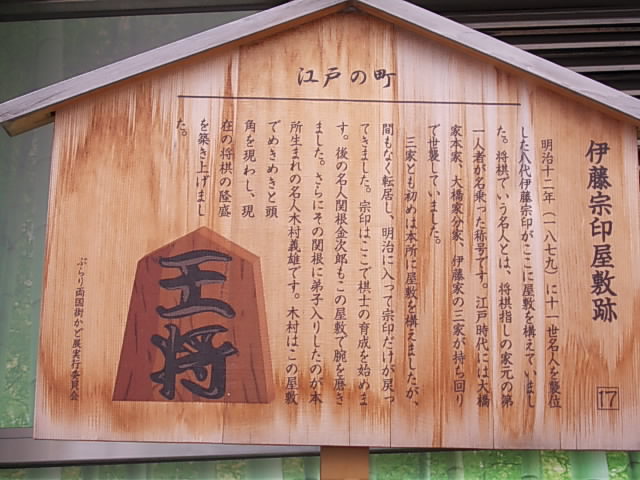 江戸の町
伊藤宗印屋敷跡
17
明治十二年（一八七九）に十一世名人を襲位
した八代伊藤宗印がここに屋敷を構えていまし
た。将棋でいう名人とは、将棋指しの家元の第
一人者が名乗った称号です。江戸時代には大橋
家本家、大橋家分家、伊藤家の三家が持ち回り
で世襲していました。
三家とも初めは本所に屋敷を構えましたが、
間もなく転居し、明治に入って宗印だけが戻っ
てきました。宗印はここで棋士の育成を始めま
す。後の名人関根金次郎もこの屋敷で腕を磨き
ました。さらにその関根に弟子入りしたのが本
所生まれの名人木村義雄です。木村はこの屋敷
でめきめきと頭
角を現わし、現
在の将棋の隆盛
を築き上げまし
た。
王将
ぶらり両国街かど展実行委員会